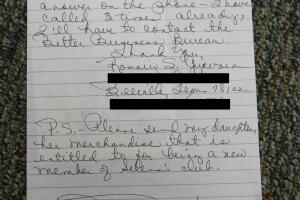 answer on the phone - I have
called 3 times already,
I'll have to contact the
Better Business Bureau.
Thank You,
Texas 78102
P.S. - Please send my daughter,
her merchandise that is
entitled to for being a new
member of Selena's club.